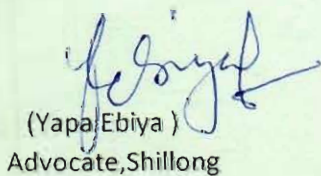 (Yapa Ebiya )
Advocate,Shillong